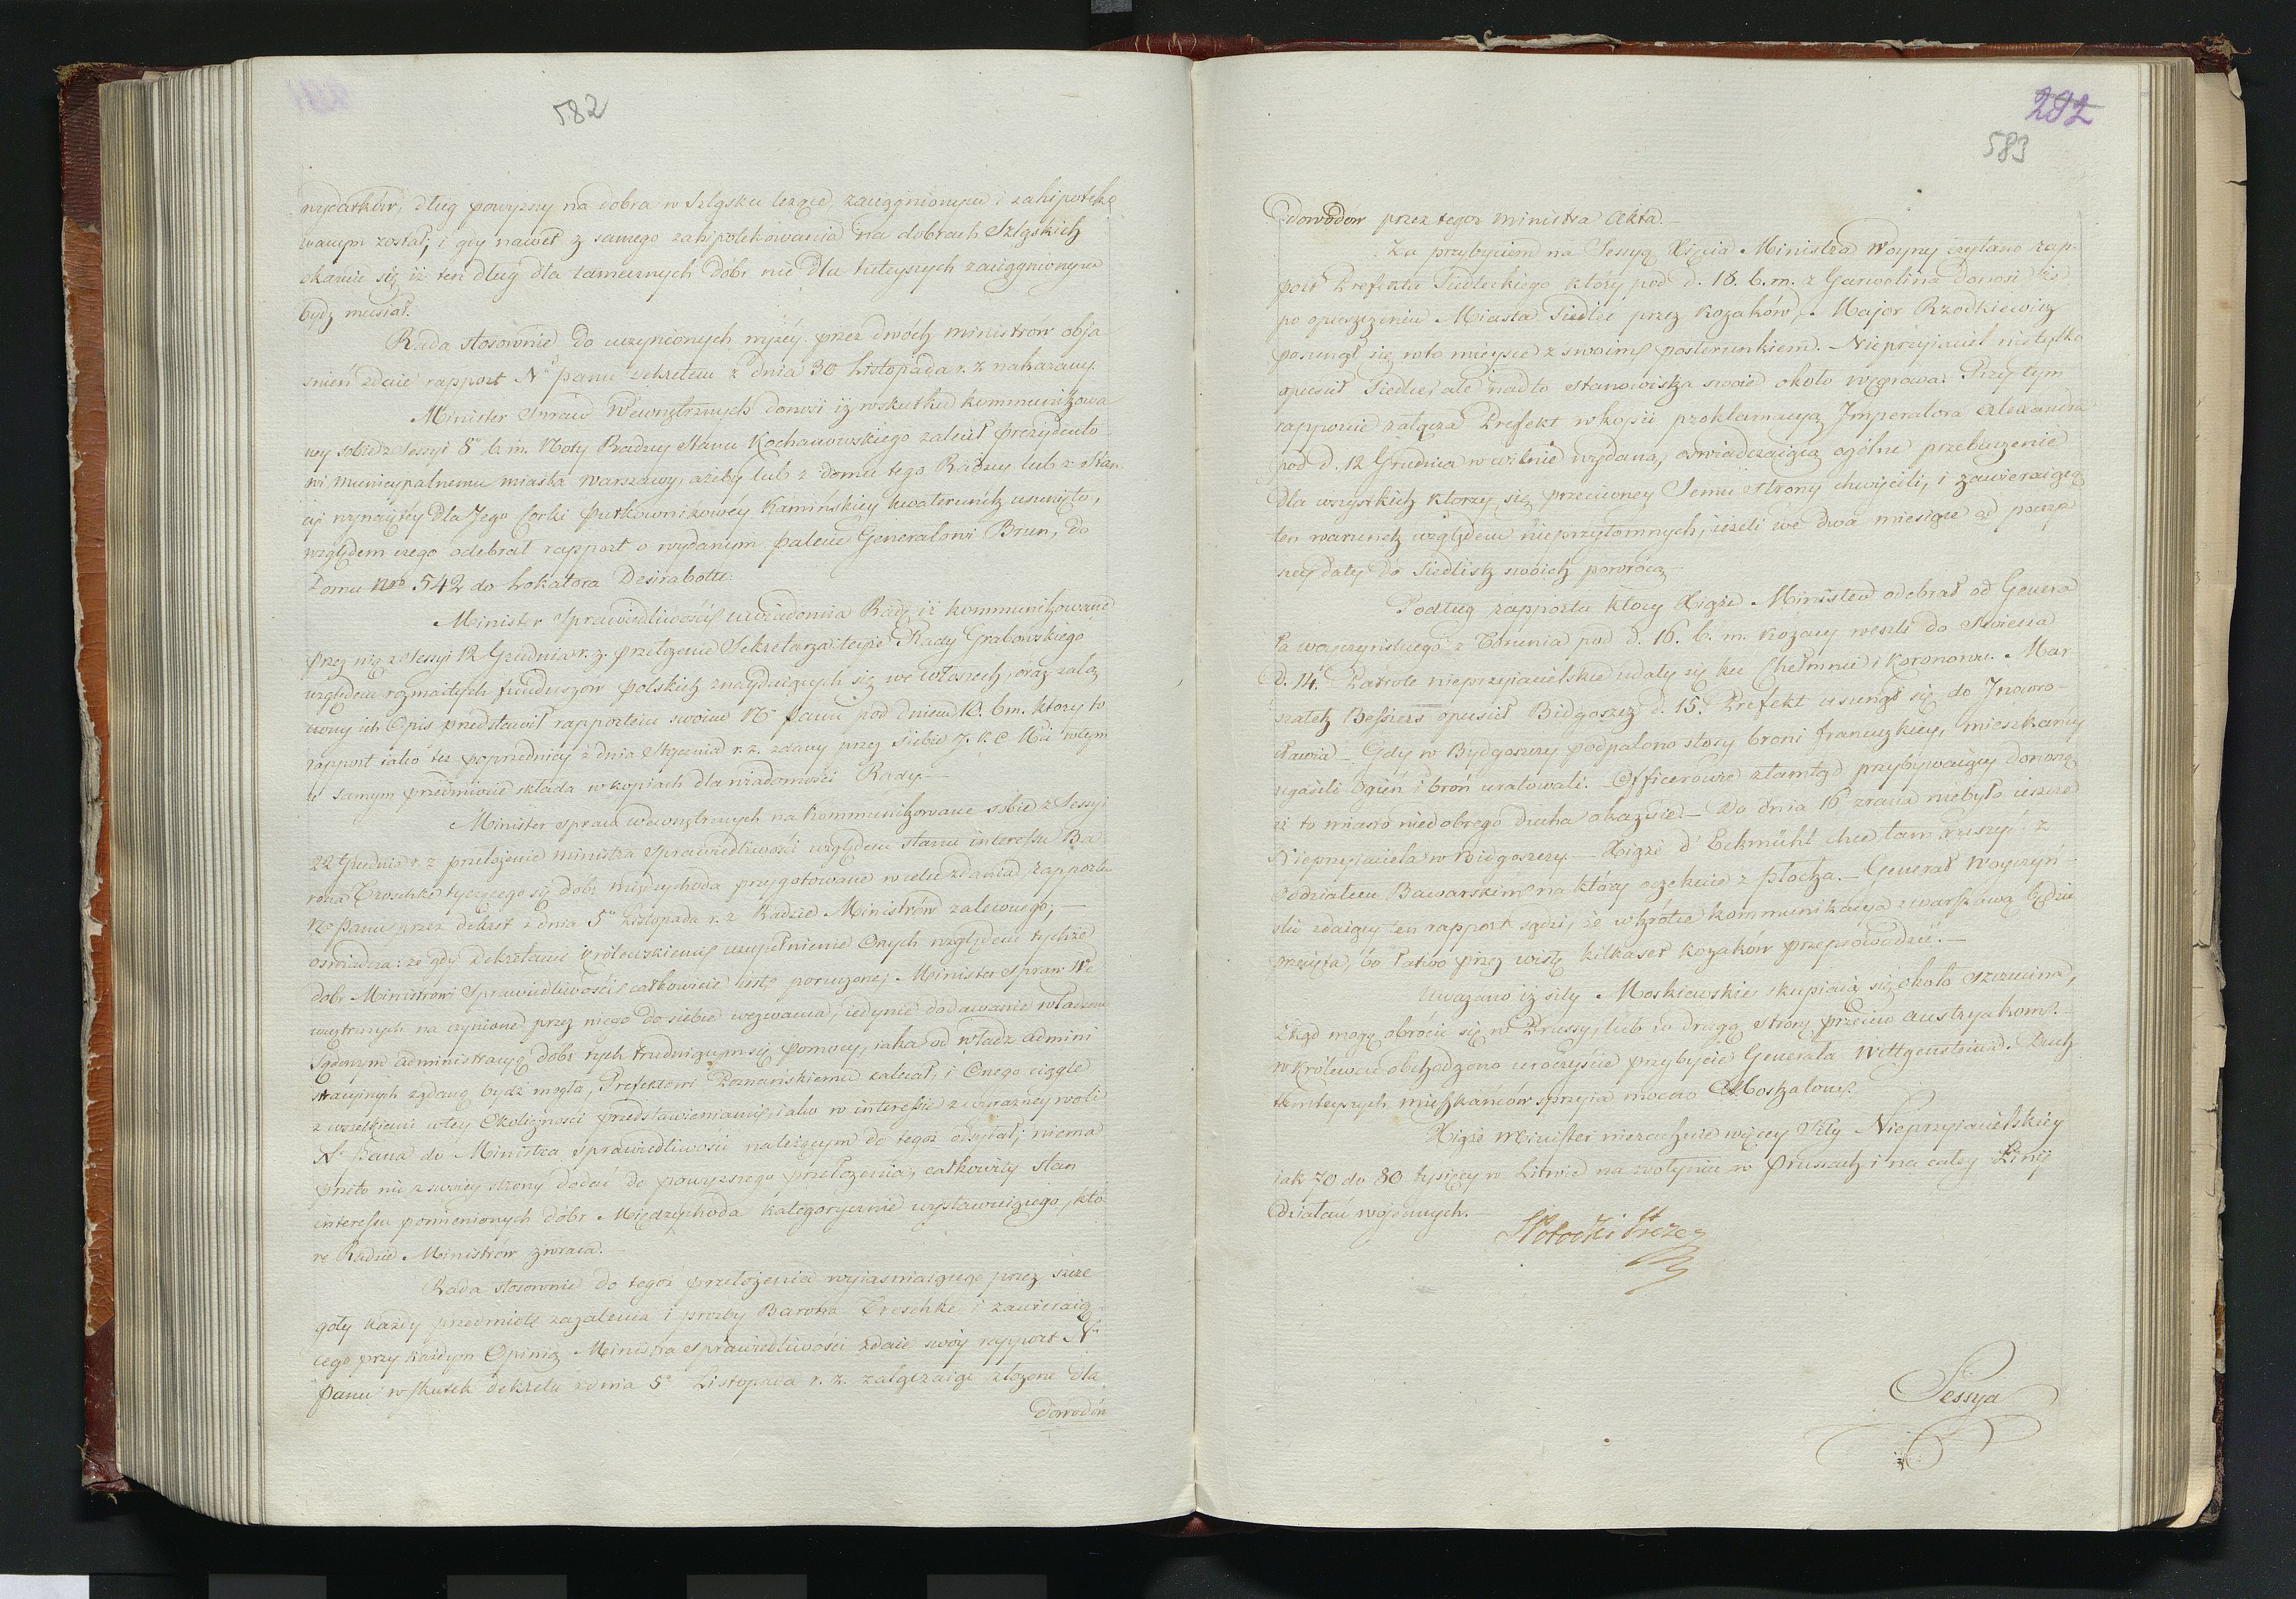 582
wydatków, dług powyższy na dobra w Szląsku leżące, zaciągnionym i zahipoteko
wanym został; i gdy nawet z samego zahipotekowania na dobrach Szląskich
okazuie się iż ten dług dla tamecznych dóbr nie dla tuteyszych zaciągnionym
bydź musiał.
Rada stosownie do uczynionych wyżéy przez dwóch ministrów obja
śnień zdaie rapport Nu Panu dekretem z dnia 30 Listopada r. z. nakazany.
Minister Spraw Wewnętrznych donosi iż w skutku kommunikowa
ney sobie z Sessyi 8º b. m. Noty Radzcy Stanu Kochanowskiego zalecił Prezydento
wi municypalnemu miasta Warszawy, ażeby lub z domu tego Radzcy lub z Stan
cyi wynaiętey dla Jego Corki Pułkownikowéy Kamińskiey kwaterunek usunięto,
względem czego odebrał rapport o wydanym palecie Generałowi Brun, do
Domu Nro 542 do Lokatora Desirabotte.
Minister Sprawiedliwości uwiadomia Radę iż kommunikowane
przez nią z Sessyi 12 Grudnia r. z. przełożenie Sekretarza teyże Rady Grabowskiego
względem rozmaitych funduszów polskich znayduiących się we Włoszech, oraz załą
czony ich Opis przedstawił rapportem swoim Nu Panu pod dniem 10. b m. który to
rapport iako też poprzedniczy z dnia Stycznia r. z. zdany przez siebie J. K. C. Mci w tym
że samym przedmiocie składa w kopiach dla wiadomości Rady.—
Minister spraw wewnętrznych na kommunikowane sobie z Sessyi
22 Grudnia r. z. przełożenie ministra Sprawiedliwości względem stanu interessu Ba
rona Troschke tyczącego się dóbr Międzychoda przygotowane w celu zdania rapportu
Nu Panu przez dekret z dnia 5º Listopada r. z. Radzie Ministrów zaleconego;—
oswiadcza: że gdy dekretami Królewskiemi uzupełnienie Onych względem tychże
dobr Ministrowi Sprawiedliwości całkowicie iest poruczone; Minister spraw We
wnętrznych na czynione przez niego do siebie wezwania, iedynie dodawanie władzom
Sądowym administracyą dobr tych trudniącym się pomocy, iaka od władz admini
stracyinych żądaną bydź mogła, Prefektowi Poznańskiemu zalecał, i Onego ciągle
z wszelkiemi w tey Okoliczności przedstawieniami, iako w interessie z wyrazney woli
No Pana do Ministra sprawiedliwości należącym do tegoż odsyłał; niema
przeto nic z swoiey strony dodać do powyższego przełożenia, całkowity stan
interessu pomienionych dóbr Międzychoda kategorycznie wystawuiącego, któ
re Radzie Ministrów zwraca.—
Rada stosownie do tegoż przełożenia wyiasniaiącego przez szcze
goły każdy przedmiot zażalenia i prozby Barona Troschke i zawieraią
cego przy każdym Opinią Ministra sprawiedliwości zdaie swóy rapport Nu
Panu w skutek dekretu z dnia 5º Listopada r. z. załączaiąc złożone dla
Dowodów
292
583
Dowodów przez tegoż ministra Akta.—
Za przybyciem na Sessyą Xięcia Ministra Woyny czytano rap-
port Prefekta Siedleckiego który pod d. 18. b. m. z Garwolina donosi iż
po opuszczeniu Miasta Siedlec przez Kozaków, Major Rzodkiewicz
posunął się w to mieysce z swoim posterunkiem. Nieprzyiaciel nie tylko
opuścił Siedlce, ale nadto stanowiska swoie około Węgrowa. Przy tym
rapporcie załącza Prefekt w kopii proklamacyą Imperatora Alexandra
pod d. 12 Grudnia w Wilnie wydaną, oswiadczaiącą ogólne przebaczenie
dla wszystkich ktorzy się przeciwney Jemu strony chwycili, i zawieraiącą
ten warunek względem nieprzytomnych, ieżeli we dwa miesiące od powyż
szey daty do siedlisk swoich powrócą—
Podług rapportu ktory Xiąże Minister odebrał od Genera
ła Woyczyńskiego z Torunia pod d. 16. b. m. kozacy weszli do Swiecia
d. 14. Patrole nieprzyiacielskie udały się ku Chełmnie i Koronowu. Mar
szałek Bessieres opuścił Bidgoszcz d. 15. Prefekt usunął się do Inowro-
cławia— Gdy w Bydgoszczy podpalono stosy broni francuzkiey, mieszkańcy
ugasili Ogień i broń uratowali. Officerowie ztamtąd przybywaiący donoszą
iż to miasto niedobrego ducha okazuie.— Do dnia 16 zrana niebyło ieszcze
Nieprzyiaciela w Bidgoszczy.— Xiąże d'Eckmühl chce tam ruszyć z
Oddziałem Bawarskim na który oczekuie z Płocka.— Generał Woyczyń-
ski zdaiący ten rapport sądzi, że wkrótce kommunikacya z Warszawą będzie
przecięta, bo łatwo przez Wisłę kilkaset Kozaków przeprowadzić.—
Uważano iż siły Moskiewskie skupiaią się około Szczucina,
zkąd mogą obrócić się w Prussy, lub w drugą stronę przeciw Austryakom.—
w Królewcu obchodzono uroczyście przybycie Generała Wittgensteina. Duch
tamteyszych mieszkańców sprzyia mocno Moskalom.
Xiąże Minister nierachuie więcey Siły Nieprzyiacielskiey
iak 70 do 80 tysięcy w Litwie na Wołyniu w Prusach i na całey Linij
Działań woiennych.—
SPotocki Prezes
Sessya